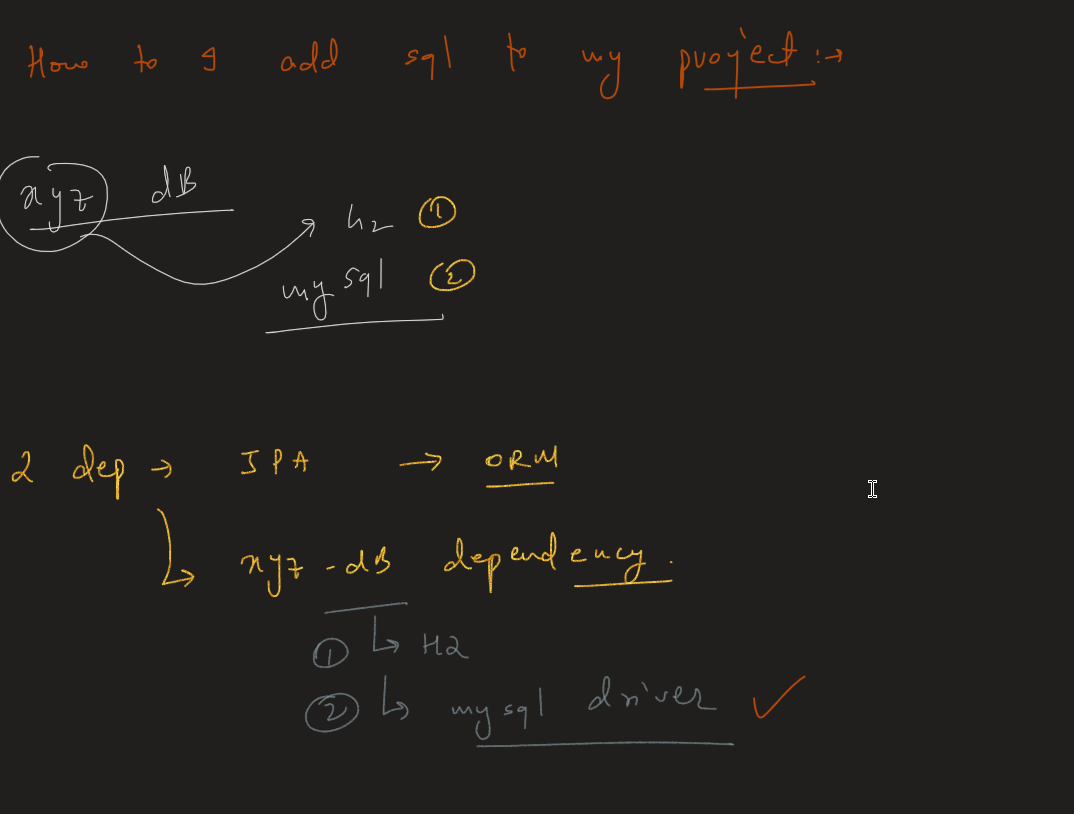 How to I add sql to my project :→
xyz dB
h2 ①
mysql ②
2 dep → JPA → ORM
xyz-dB dependency.
① ↳ H2
② ↳ mysql driver ✓